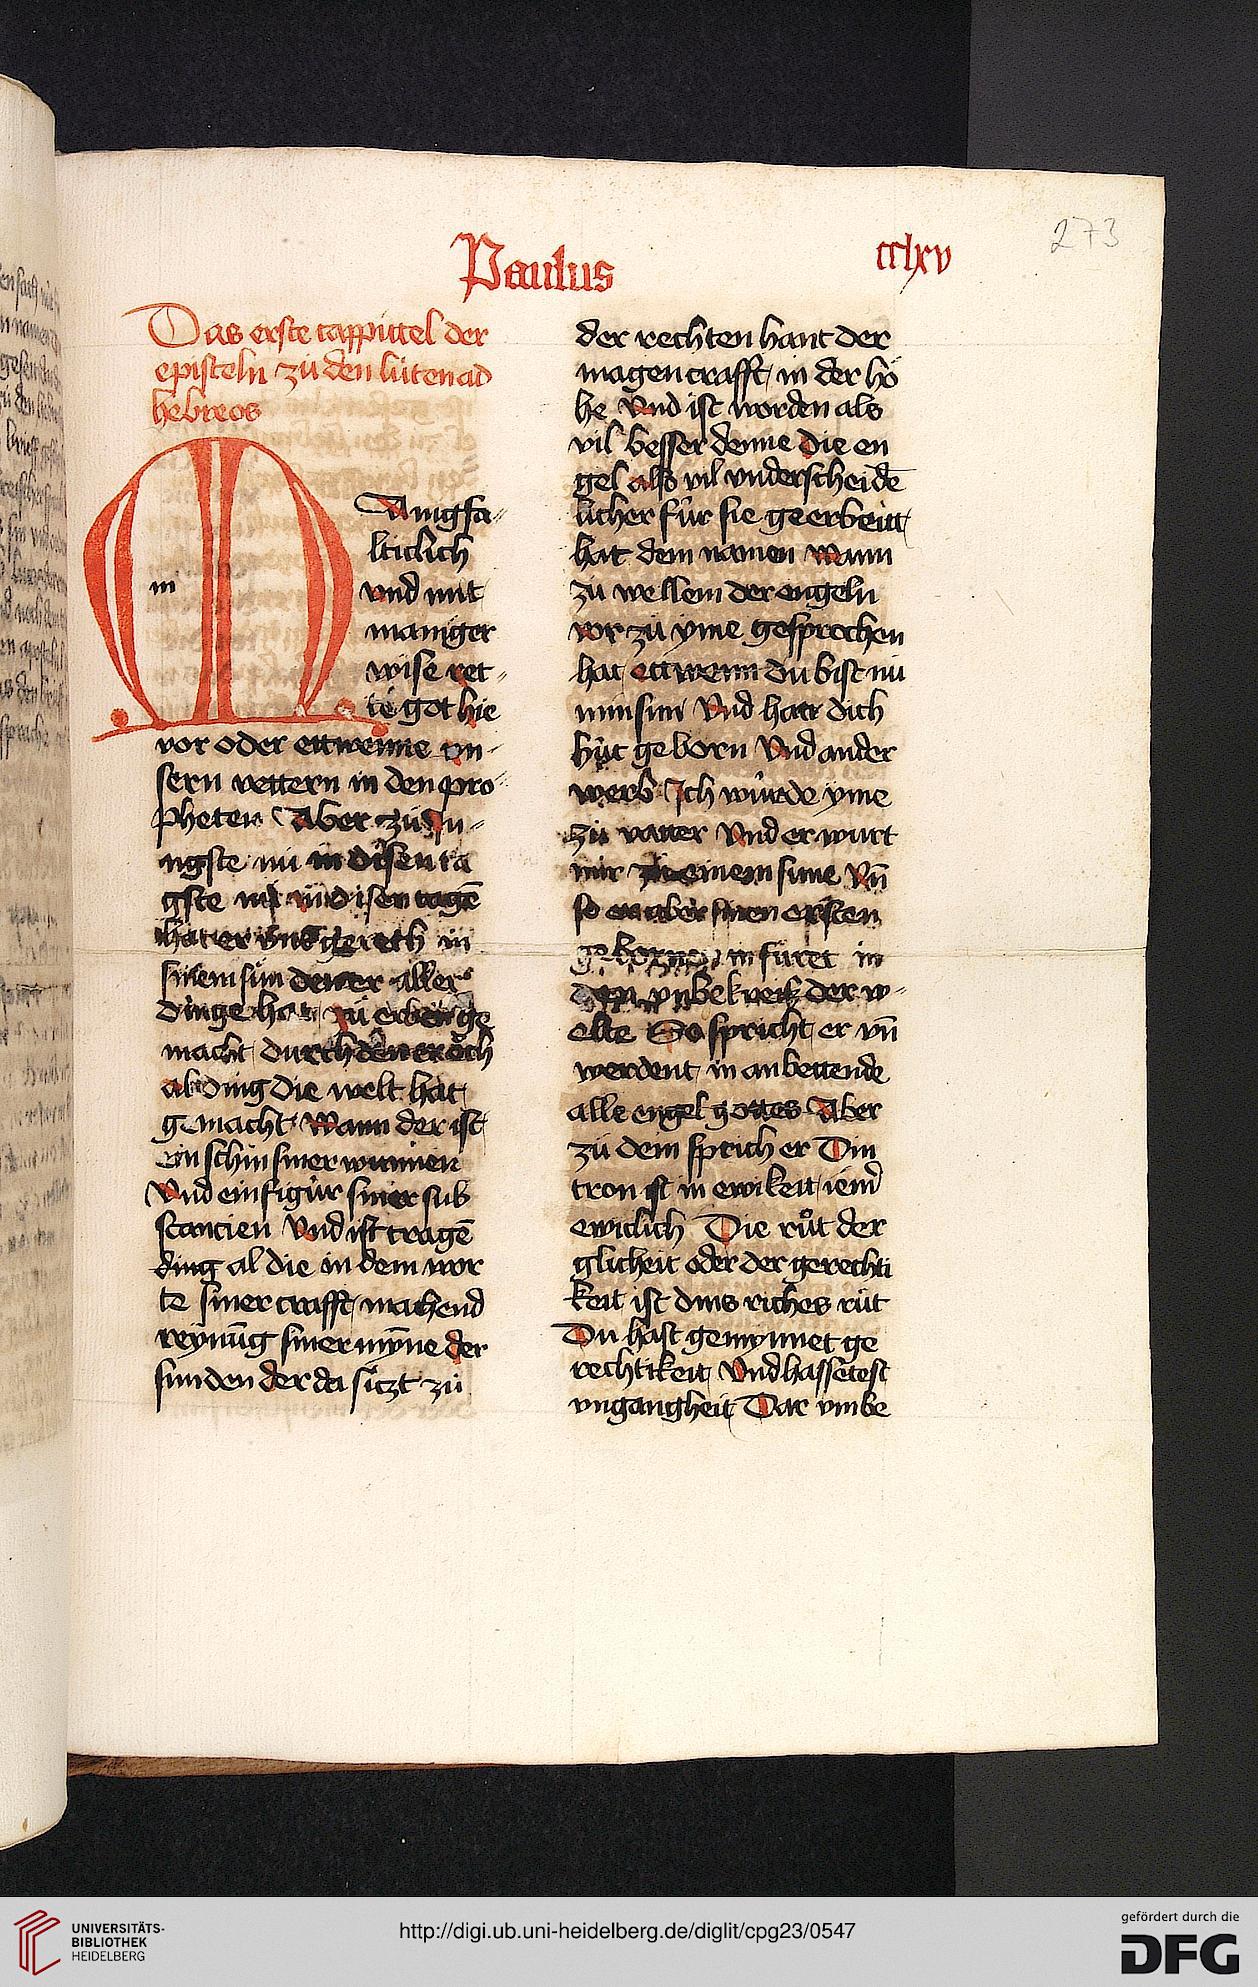 Paulus
cclxv
273
Das erste cappittel der
episteln zů den lüten ad
hebreos
m
Anigfa-
lticlich
vnd mit
maniger
wise ret-
te got hie
vor oder ettwenne vn-
sern vettern in den pro-
pheten Aber zů Ju-
ngste nu in disen ta
gste nu in disen tagē
hat er vns gereth in
sinem sun den er aller
dinge hat zů erben ge
macht durch den er och
al ding die welt hat
gemacht Wann der ist
ein schin siner wunnen
Vnd ein figůr siner sub
stancien Vnd ist tragē
ding al die in dem wor
te siner crafft machend
reynūg siner mÿne der
sunden der da siczt zů
der rechten hant der
magencrafft in der hö
he Vnd ist worden als
vil besser denne die en
gel als vil vnderscheidē
licher für sie geerbeitt
hat dem namen Wann
zů wellem der engeln
vor zů yme gesprochen
hat ettwenn du bist nü
min sun Vnd hatt dich
hüt geborn Vnd ander
werb Ich würde yme
zů vatter Vnd er wurt
mir zů einem sune Vn̄
so er aber sinen ersten
gebornen in füret in
den vmbekreiß der w-
elte So spricht er vn̄
werdent in anbettende
alle engel gottes Aber
zů dem sprich er Din
tron ist in ewikeit iem̄
ewiclich Die růt der
glicheit oder der gerechti
keit ist dins riches růt
Du hast gemynnet ge
rechtikeit Vnd hassetest
vngangheit Dar vmbe
UNIVERSITÄTS-
BIBLIOTHEK
HEIDELBERG
http://digi.ub.uni-heidelberg.de/diglit/cpg23/0547
gefördert durch die
DFG